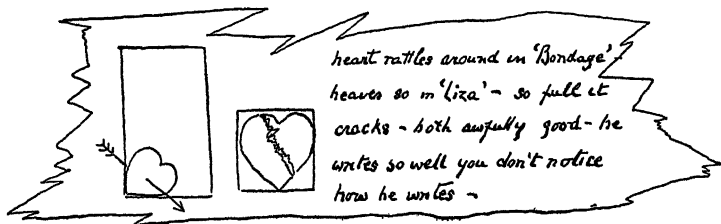 heart rattles around in 'Bondage' -
heaves so in 'Liza' - so full it
cracks - both awfully good - he
writes so well you don't notice
how he writes -